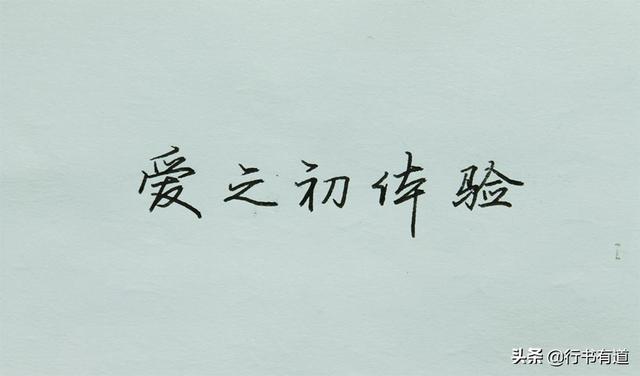 爱之初体验
头条 @行书有道